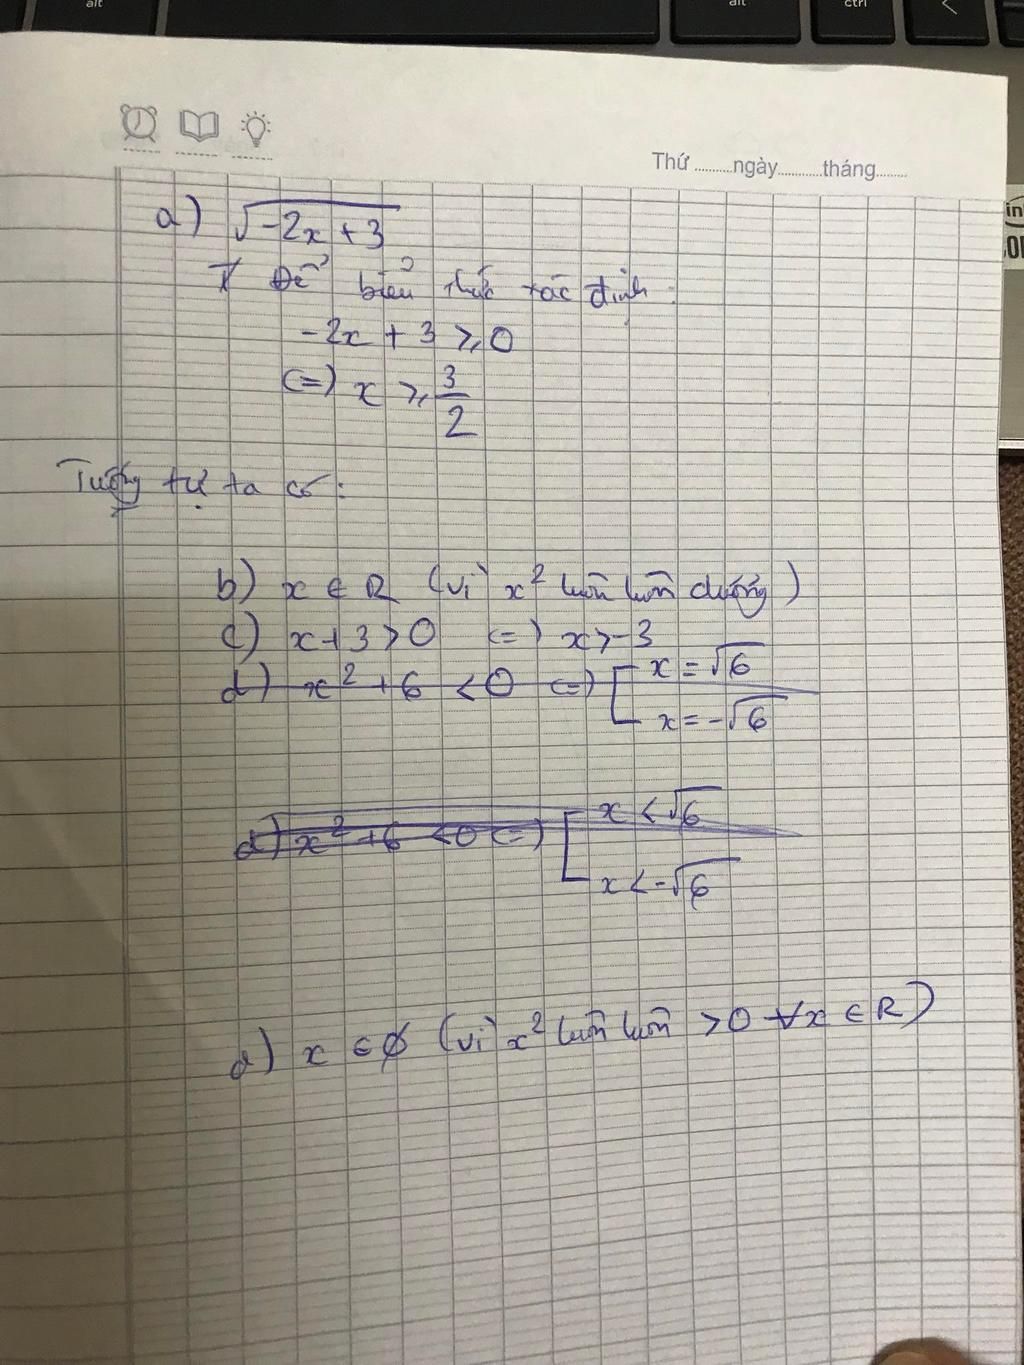 alt
alt
ctrl
<
Thứ ........ngày..........tháng.......
in
a) √-2x + 3
Để biểu thức xác định :
-2x + 3 ≥ 0
<=> x ≥ 3/2
Tương tự ta có :
b) x ∈ R (vì x² luôn luôn dương)
c) x + 3 > 0 <=> x > -3
d) x² + 6 < 0 <=> [ x = √6
x = -√6
d) x² + 6 < 0 <=> [ x < √6
x < -√6
d) x ∈ ∅ (vì x² luôn luôn > 0 ∀x ∈ R)